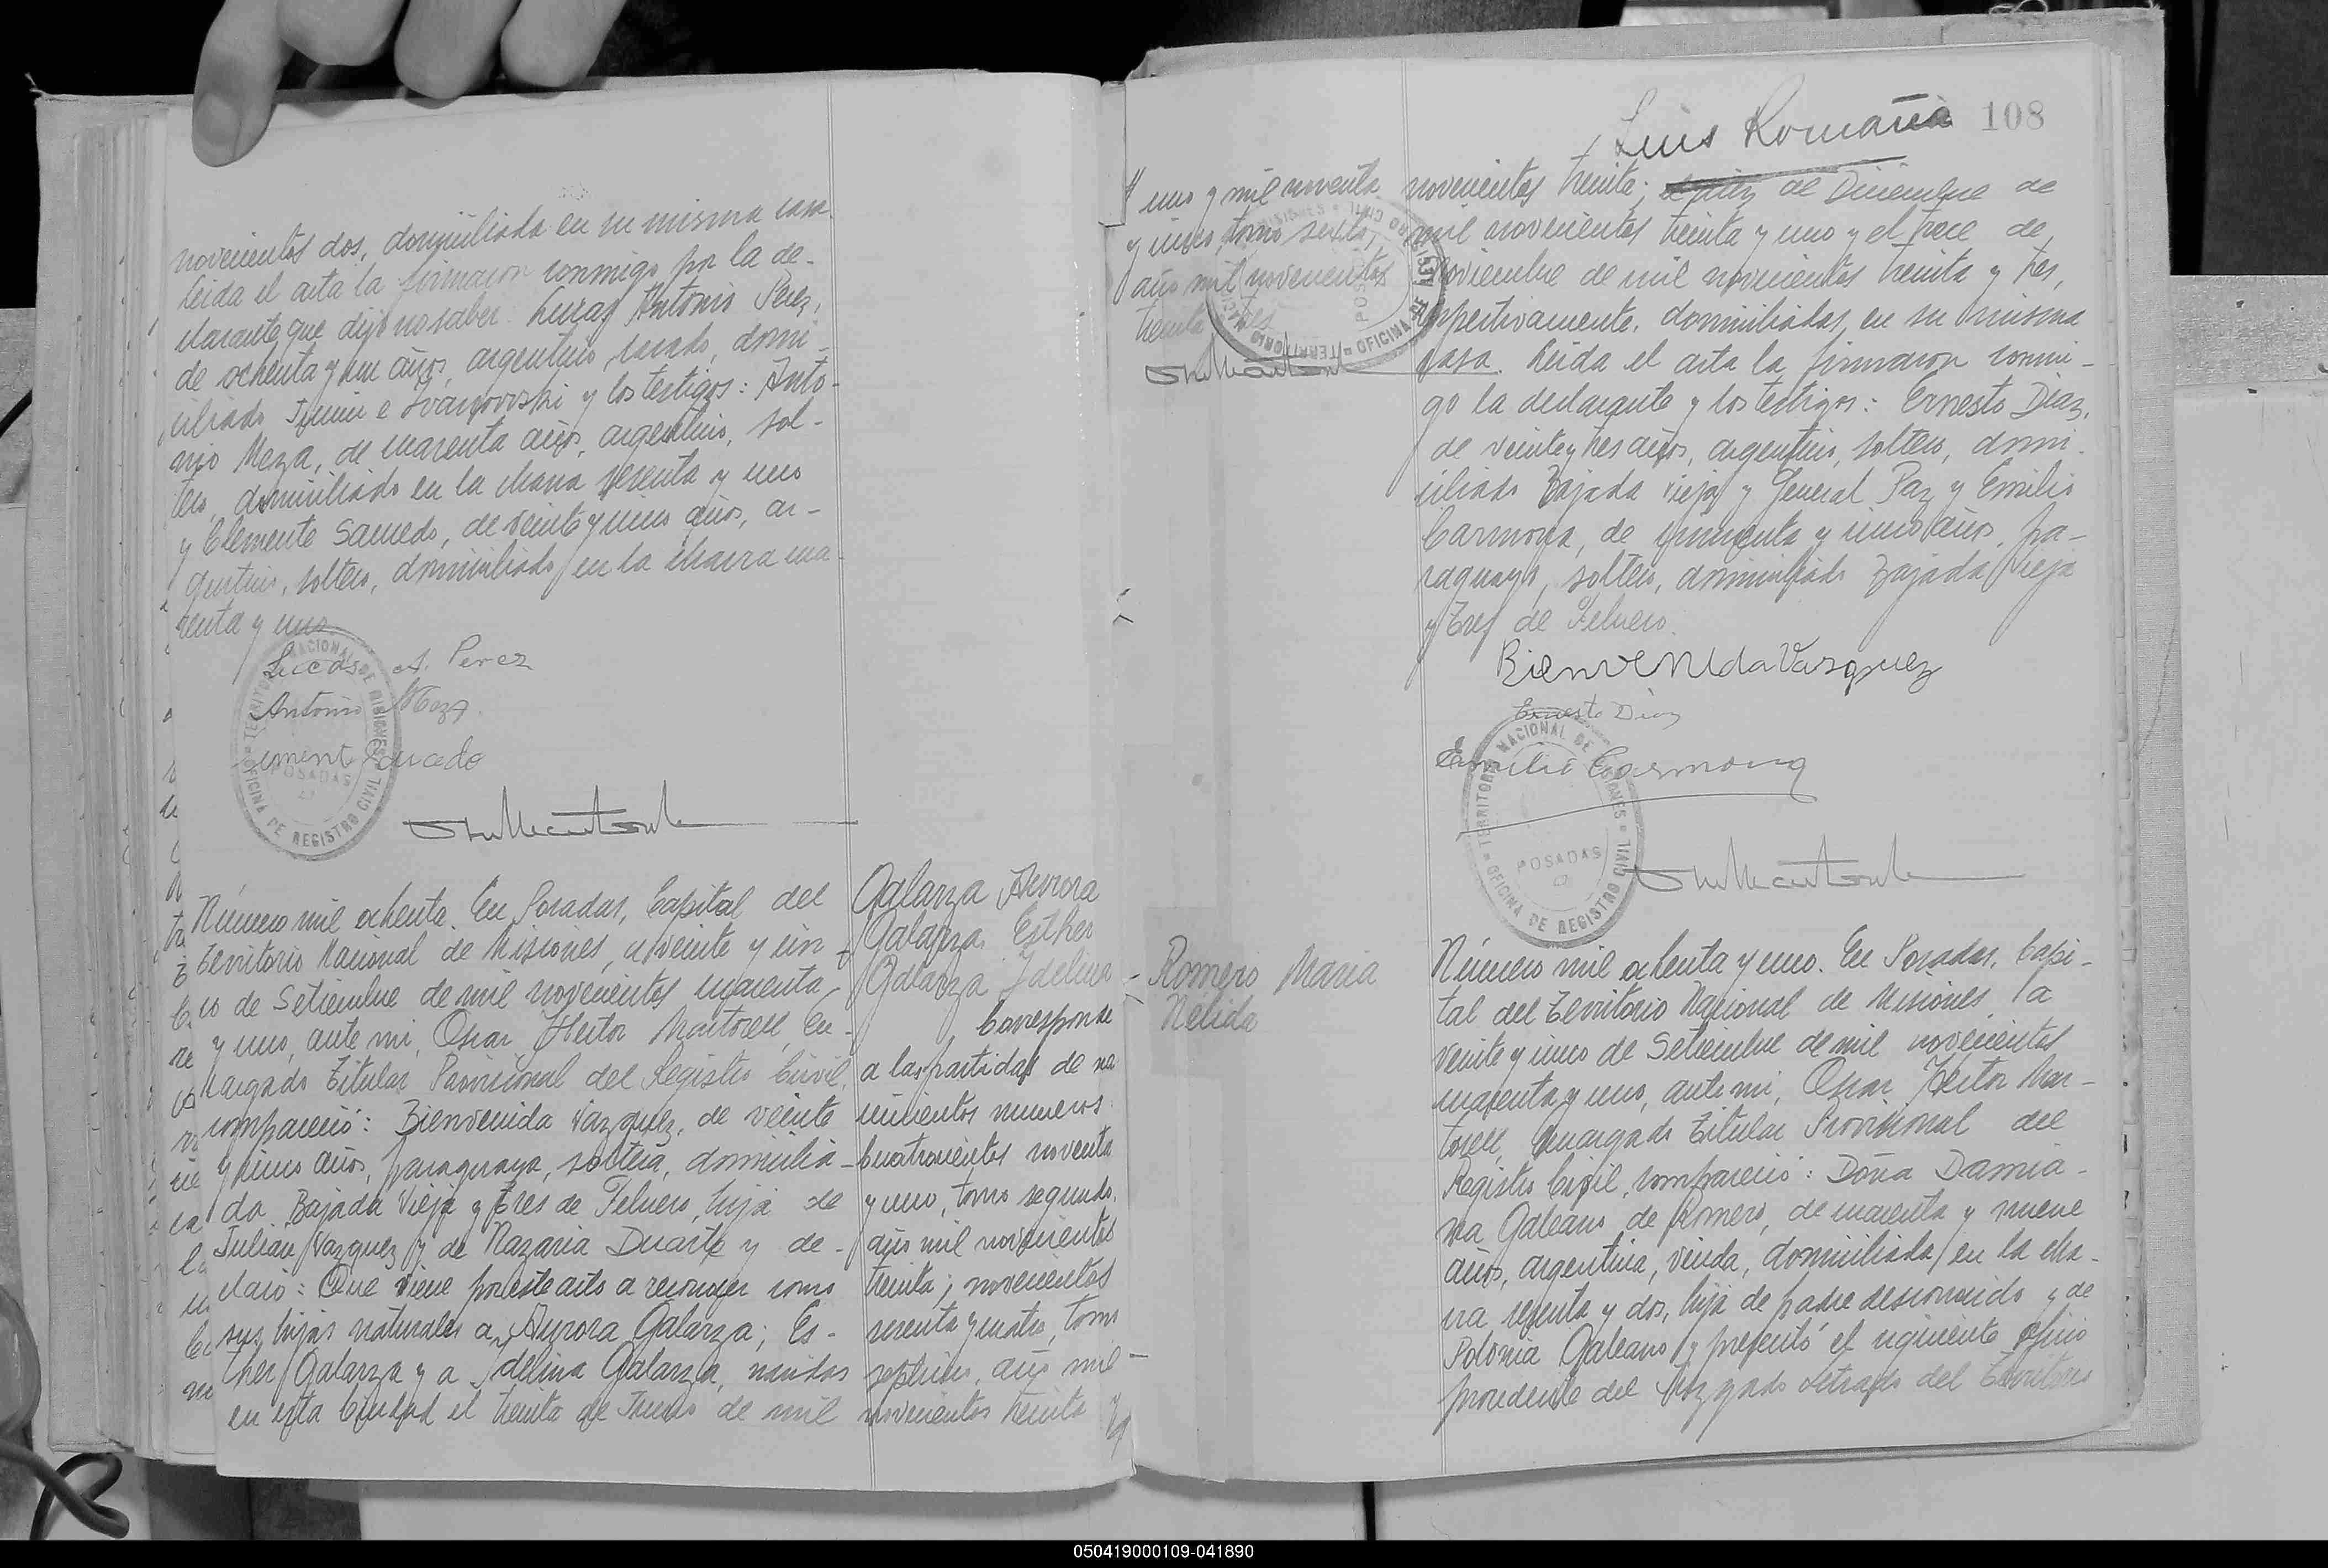 novecientos dos, domiciliada en su misma casa.
Leida el acta la firmaron conmigo por la de-
clarante que dijo no saber: Lucas Antonio Perez,
de ochenta y un años, argentino, casado, domi-
ciliado Junin e Ivanowski y los testigos: Anto-
nio Meza, de cuarenta años, argentino, sol-
tero, domiciliado en la chacra sesenta y uno
y Clemente Saucedo, de veinte y cinco años, ar-
gentino, soltero, domiciliado en la chacra cua-
renta y uno
Lucas A. Perez
Antonio Meza
ement Saucedo
TERRITORIO NACIONAL DE MISIONES
OFICINA DE REGISTRO CIVIL
POSADAS
Número mil ochenta. En Posadas, Capital del
Territorio Nacional de Misiones, a veinte y cin-
co de Setiembre de mil novecientos cuarenta
y uno, ante mi, Oscar Hector Martorell, En-
cargado Titular Provisional del Registro Civil,
compareció: Bienvenida Vazquez, de veinte
y cinco años, paraguaya, soltera, domicilia-
da Bajada Vieja y Tres de Febrero, hija de
Julian Vazquez y de Nazaria Duarte y de-
claró: Que viene por este acto a reconocer como
sus hijas naturales a Aurora Galarza; Es-
ther Galarza y a Idelina Galarza, nacidas
en esta Ciudad el treinta de Junio de mil
Galarza Aurora
Galarza Esther
Galarza Idelina
Corresponde
a las partidas de na-
cimientos numeros
cuatrocientos noventa
y uno, tomo segundo,
año mil novecientos
treinta; novecientos
sesenta y cuatro, tomo
septimo, año mil
novecientos treinta
108
Luis Romañá
y uno y mil noventa
y cinco tomo sexto,
año mil novecientos
treinta y tres
TERRITORIO NACIONAL DE MISIONES
OFICINA DE REGISTRO CIVIL
POSADAS
novecientos treinta; el diez de Diciembre de
mil novecientos treinta y uno y el trece de
Noviembre de mil novecientos treinta y tres,
respectivamente, domiciliadas en su misma
casa. Leida el acta la firmaron conmi-
go la declarante y los testigos: Ernesto Diaz,
de veinte y tres años, argentino, soltero, domi-
ciliado Bajada Vieja y General Paz y Emilio
Carmona, de cincuenta y cinco años, pa-
raguayo, soltero, domiciliado Bajada Vieja
y Tres de Febrero.
Bienvenida Vasquez
Ernesto Diaz
Emilio Carmona
TERRITORIO NACIONAL DE MISIONES
OFICINA DE REGISTRO CIVIL
POSADAS
Romero Maria
Nélida
Número mil ochenta y uno. En Posadas, Capi-
tal del Territorio Nacional de Misiones, a
veinte y cinco de Setiembre de mil novecientos
cuarenta y uno, ante mi, Oscar Hector Mar-
torell, Encargado Titular Provisional del
Registro Civil, compareció: Doña Damia-
na Galeano de Romero, de cuarenta y nueve
años, argentina, viuda, domiciliada en la cha-
cra sesenta y dos, hija de padre desconocido y de
Polonia Galeano y presentó el siguiente oficio
procedente del Juzgado Letrado del Territorio
050419000109-041890